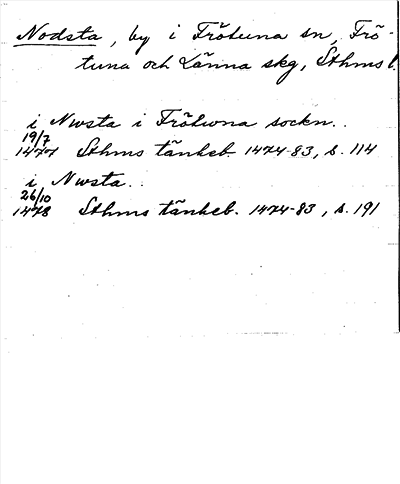 Nodsta, by i Frötuna sn, Frö-
tuna och Länna skg, Sthms l.
i Nwsta i Frötwna sockn..
19/7
1477 Sthms tänkeb. 1474-83, s. 114
i Nwsta..
26/10
1478 Sthms tänkeb. 1474-83, s. 191